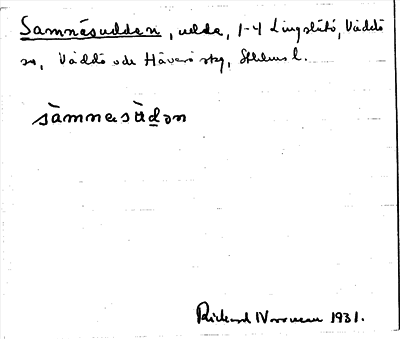 Samnäsudden, udde, 1-4 Lingslätö, Väddö
sn, Väddö och Häverö skg, Sthlms l.
sàmnəsùdən
Rickard Norman 1931.